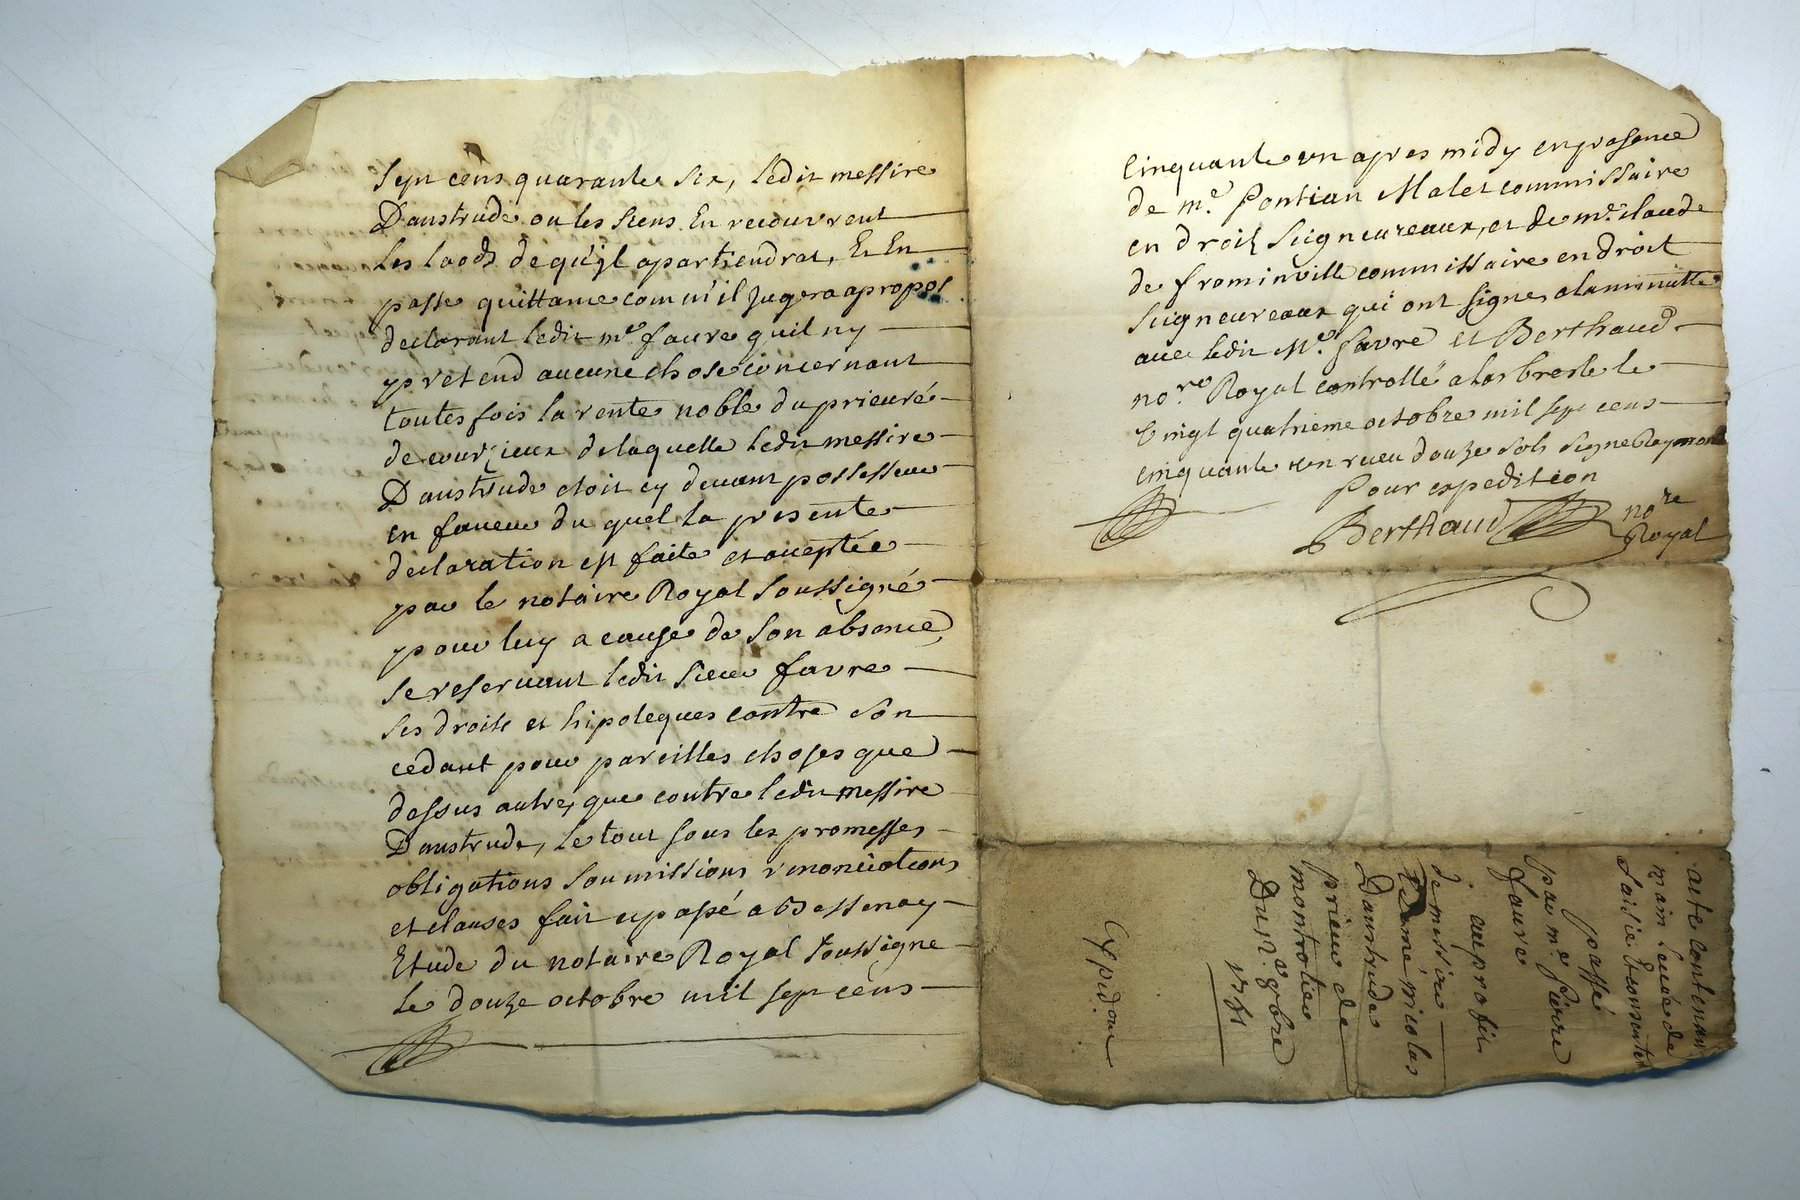 sept cens quarante six, ledit messire
Daustrude ou les siens En recouvrent
les laods de qu'jl apartiendrat, Et En
passe quittance comm'il jugera apropos
declarant ledit me. favre quil ny
pretend aucune chose concernant
toutes fois la rente noble du prieuré
de courzieux de laquelle ledit messire
Daustrude etoit cy devant possesseur
en faveur du quel la presente
declaration est faite et acceptée
par le notaire Royal soussigné
pour luy a cause de son absence,
se reservant ledit sieur favre
ses droits et hipoteques contre son
cedant pour pareilles choses que
dessus autre, que contre ledit messire
Daustrude, le tout sous les promesses
obligations soumissions renonciations
et clauses fait et passé a Bessenay
Etude du notaire Royal soussigne
le douze octobre mil sept cens
Cinquante un apres midy en presence
de me. Pontian Malet commissaire
en droit seigneureaux, et de me. claude
de frominville commissaire en droit
seigneureaux qui ont signe, a la minutte
avec ledit Me. favre et Berthaud
nore. Royal controllé a larbresle le
vingt quatrieme octobre mil sept cens
cinquante un receu douze sols signe Raymond
Pour expedition
Berthaud nore
Royal
acte contenant
main levée de
saisie Et consente
passé
par me. Pierre
favre
au profit
de messire
nicolas
Daustrude
prieur de
montrotier
Du 12e 8bre
1751
Expedon